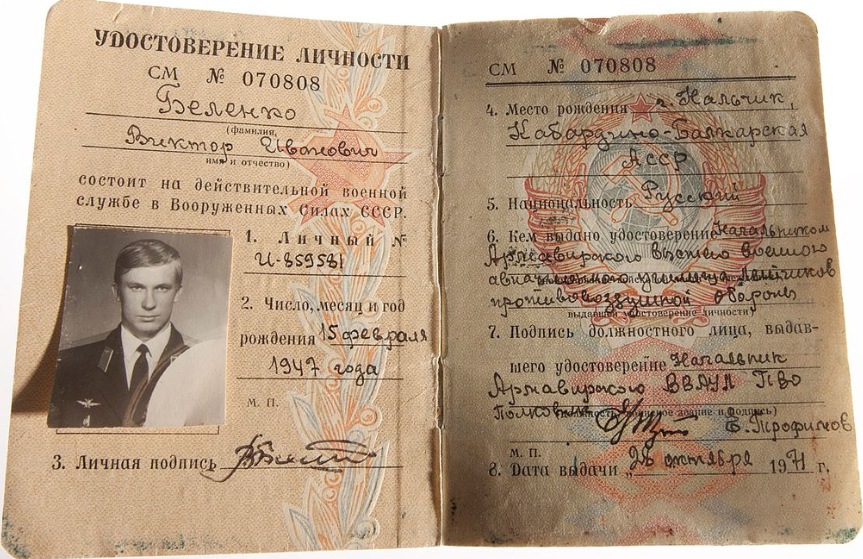 УДОСТОВЕРЕНИЕ ЛИЧНОСТИ
СМ № 070808
Беленко
(фамилия,
Виктор Иванович
имя и отчество)
состоит на действительной военной
службе в Вооруженных Силах СССР.
1. Личный №
И-859581
2. Число, месяц и год
рождения 15 февраля
1947 года
М. П.
3. Личная подпись
СМ № 070808
4. Место рождения г. Нальчик,
Кабардино-Балкарская
АССР
5. Национальность Русский
6. Кем выдано удостоверение Начальником
Армавирского высшего военного
авиационного училища летчиков
противовоздушной обороны
выдавшей удостоверение личности)
7. Подпись должностного лица, выдав-
шего удостоверение Начальник
Армавирского ВВАУЛ ПВО
Полковник Е. Трофимов
воинское звание и подпись)
М. П.
8. Дата выдачи „28 октября 1971 г.